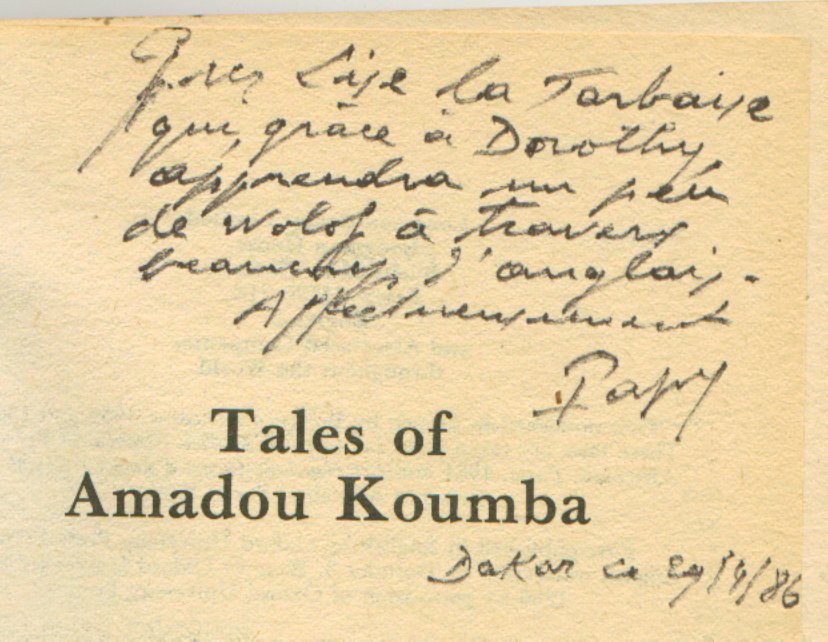 Lise la Tarbaise
qui, grâce à Dorothy
apprendra un peu
de wolof à travers
beaucoup d'anglais.
Affectueusement
Papy
Tales of
Amadou Koumba
Dakar ce 29/4/86